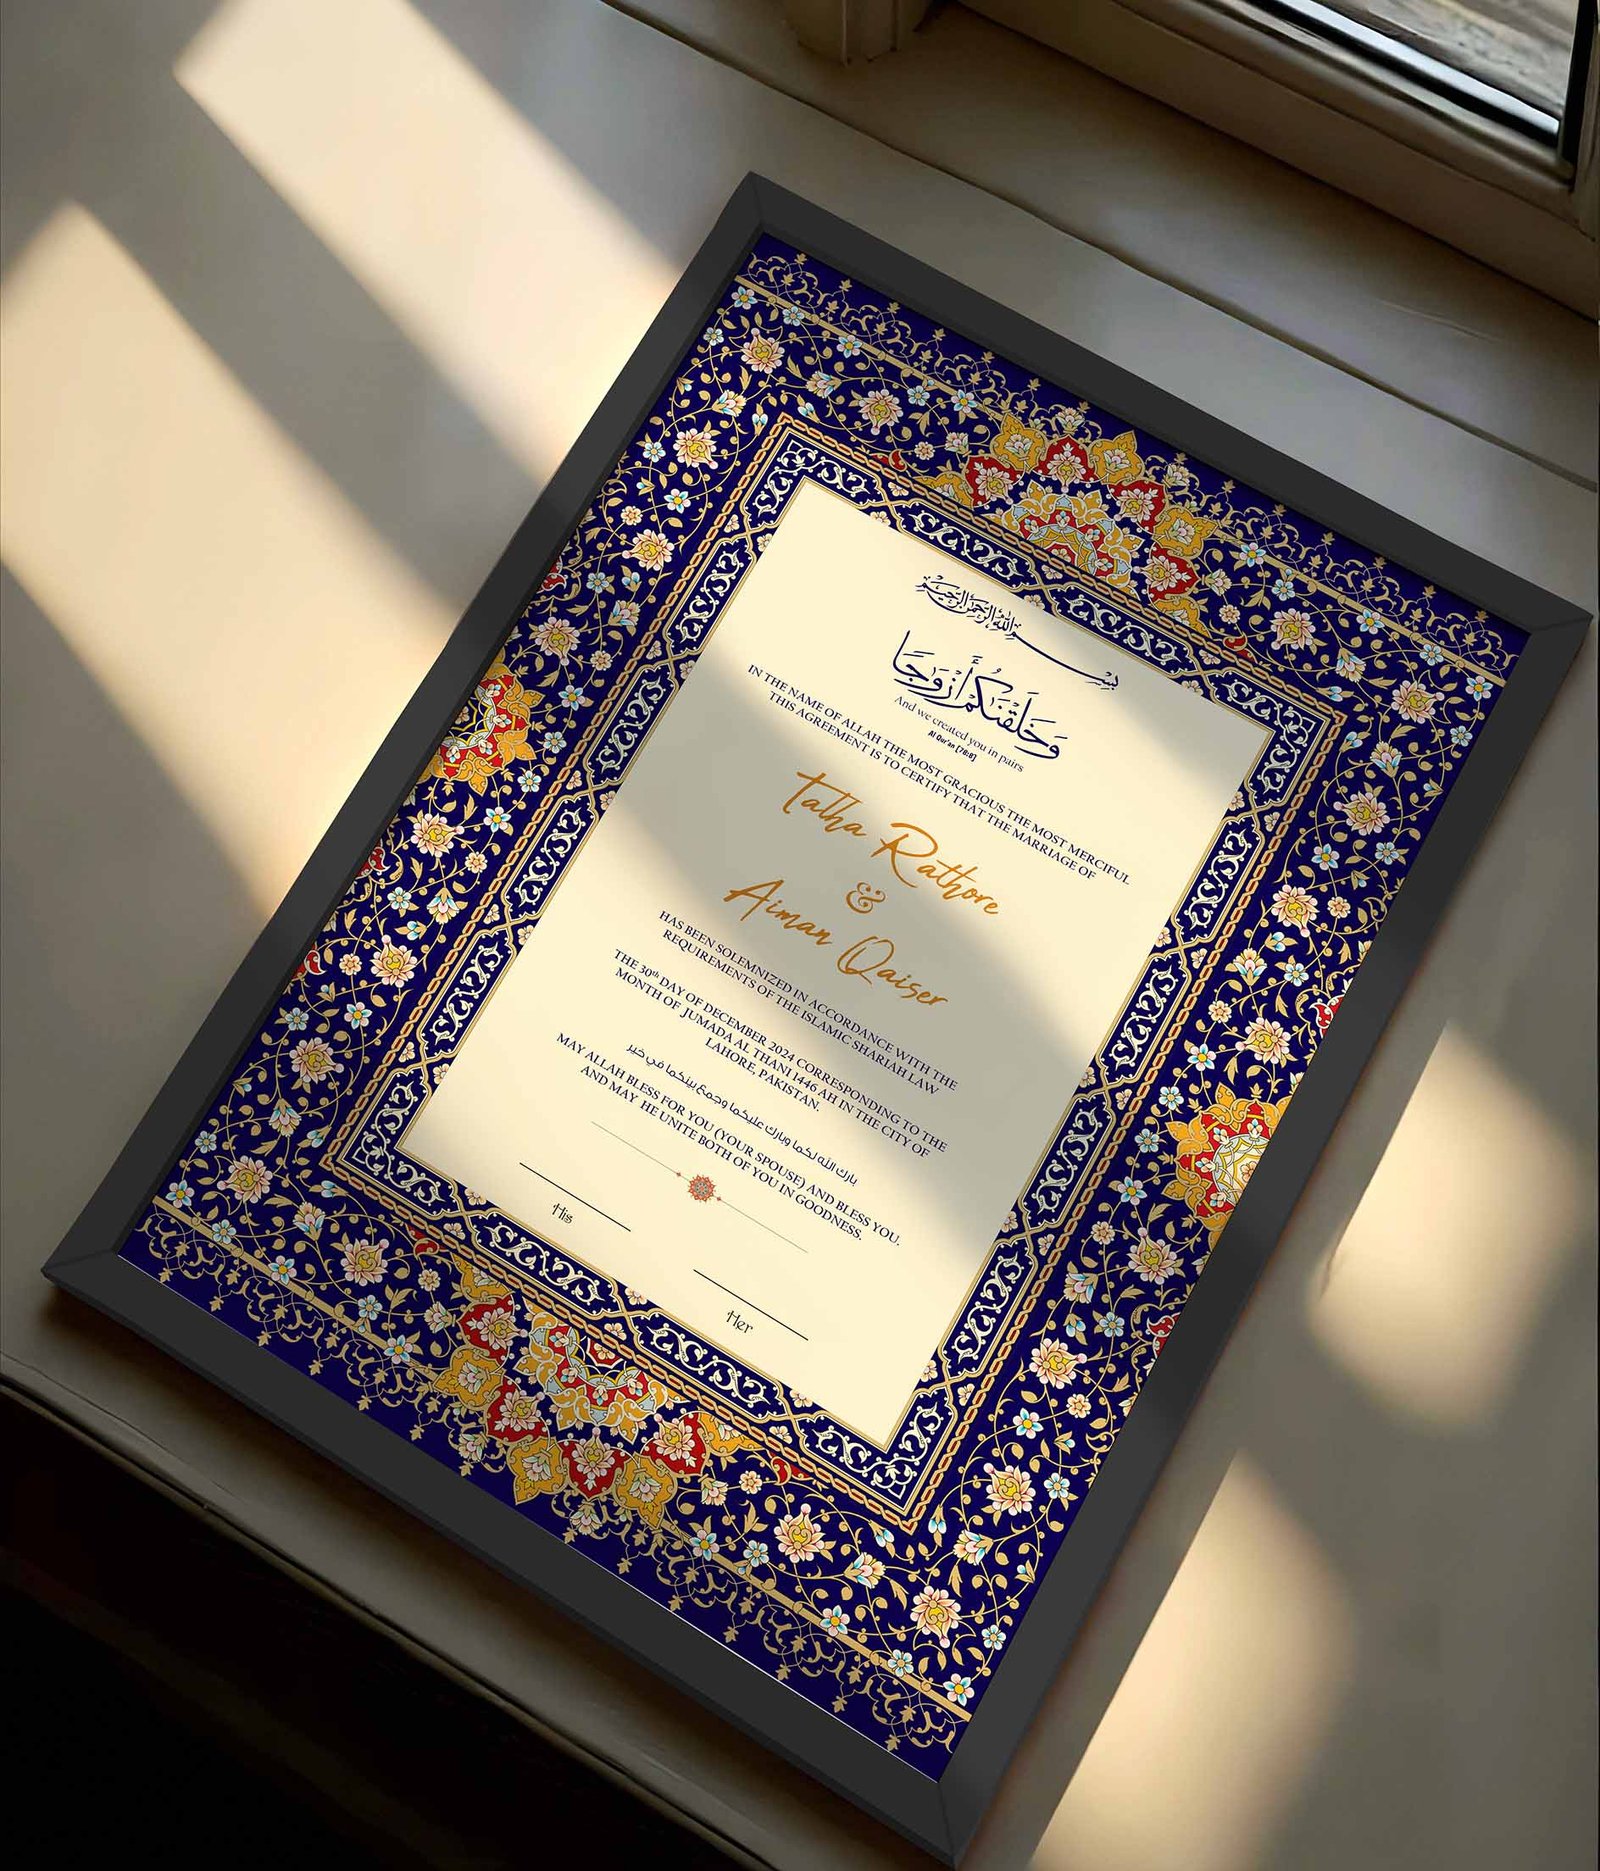 بسم الله الرحمن الرحيم
وَخَلَقْنَٰكُمْ أَزْوَٰجًا
And we created you in pairs
Al Qur'an [78:8]
IN THE NAME OF ALLAH THE MOST GRACIOUS THE MOST MERCIFUL
THIS AGREEMENT IS TO CERTIFY THAT THE MARRIAGE OF
Talha Rathore
&
Aiman Qaiser
HAS BEEN SOLEMNIZED IN ACCORDANCE WITH THE
REQUIREMENTS OF THE ISLAMIC SHARIAH LAW
THE 30th DAY OF DECEMBER 2024 CORRESPONDING TO THE
MONTH OF JUMADA AL THANI 1446 AH IN THE CITY OF
LAHORE, PAKISTAN.
بارك الله لكما وبارك عليكما وجمع بينكما في خير
MAY ALLAH BLESS FOR YOU (YOUR SPOUSE) AND BLESS YOU.
AND MAY HE UNITE BOTH OF YOU IN GOODNESS.
His
Her